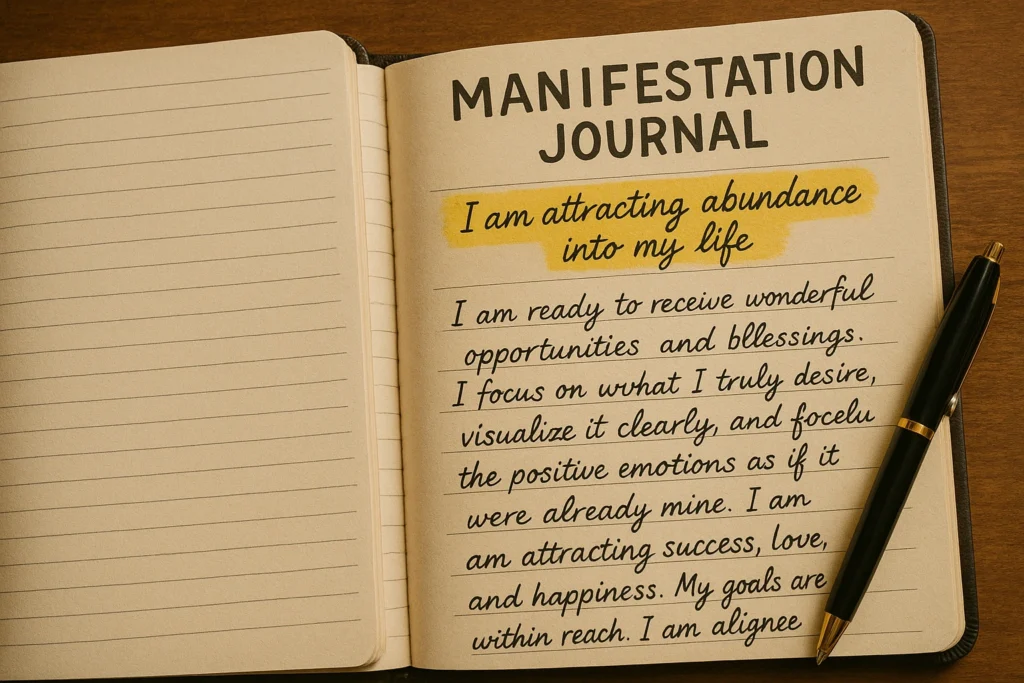 MANIFESTATION
JOURNAL
I am attracting abundance
into my life
I am ready to receive wonderful
opportunities and bllessings.
I focus on wvhat I truly desire,
visualize it clearly, and focelu
the positive emotions as if it
were already mine. I am
am attracting success, love,
and happiness. My goals are
within reach. I am alignee